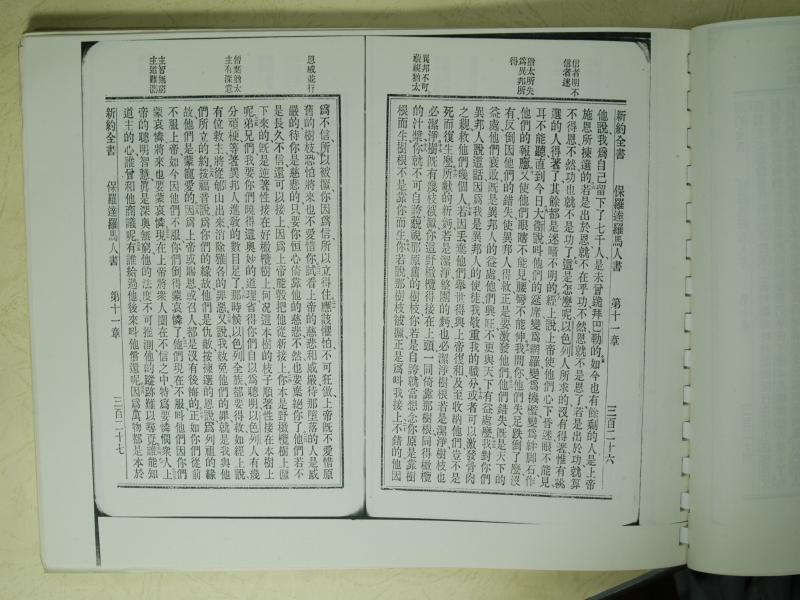 信者明不
信者迷
猶太所失
爲異邦所
得
異邦不可
藐視猶太
新約全書
保羅達羅馬人書
第十一章
三百二十六
他說我爲自己留下了七千人是未曾跪拜巴勒的如今也有餘剩的人是上帝
施恩所揀選的若是出於恩就不在乎功不然恩就不是恩了若是出於功就算
不得恩不然功也就不是功了這是怎麼呢以色列人所求的沒有得著惟有祧
選的人得著了其餘都是迷暗不明的經上說上帝使他們心下昏迷眼不能見
耳不能聽直到今日大衛說叫他們的筵席變爲網羅變爲機檻變爲絆脚石作
他們的報應又使他們眼瞎不能見腰彎不能伸我問你他們失足跌倒了麼沒
有反倒因他們的錯失使異邦人得救正是要激發他們他們錯失既是天下的
益處他們衰敗既是異邦人的益處他們興旺不更與天下有益處麼我對你們
異邦人說這話因爲我是異邦人的使徒我敬重我的職分或者可以激發骨肉
之親救他們幾個人若因丟棄他們舉世得與上帝復和及至收納他們豈不是
死而復生麼所獻的新麪若是潔淨整團的麪也必潔淨樹根若是潔淨樹枝也
必潔淨樹既有幾枝被㨿你這野橄欖得接在上頭一同倚靠那樹根同得橄欖
的汁漿你就不可自誇藐視那舊樹枝你若是自誇就當想念你原是靠樹
根而生樹根不是靠你而生你若說那樹枝被㨿正是爲叫我接上不錯的他因
恩威並行
曾棄猶太
主有深意
主智無窮
主道難測
爲不信所以被㨿你因爲信所以立得住應該懼怕不可狂傲上帝既不愛惜原
舊的樹枝恐怕將來也不愛惜你試看上帝的慈悲和威嚴待那墮落的人是威
嚴的待你是慈悲的只要你恒心倚靠他的慈悲不然也要棄絕你了他們若不
是長久不信還可以接上因爲上帝能彀把他從新接上你本是野橄欖樹上㨿
下來的既是逆著性接在好橄欖樹上何況這本樹的枝子順著性接在本樹上
呢弟兄們我要你們曉得這奧妙的道理省得你們自以爲聰明以色列人有幾
分頑梗等著異邦人進敎的數目足了那時候以色列全族都要得救如經上說
有位救主將從郇山出來消除雅各的罪惡又說我赦免他們的罪就是我與他
們所立的約按福音說爲你們的緣故他們是仇敵按揀選的恩說爲列祖的緣
故他們是蒙寵愛的因爲上帝或賜恩或召人都是沒有後悔的正如你們從前
不服上帝如今因他們不服你們倒得蒙哀憐了他們現在不服叫他們因你們
蒙哀憐將來也要蒙哀憐現在上帝將衆人圈在不信之中特爲要憐憫衆人上
帝的聰明智慧眞是深奧無窮他的法度不可推測他的蹤跡難以尋覓誰能知
道主的心誰曾和他商議呢有誰給過他後來叫他償還呢因爲萬物都是本於
新約全書
保羅達羅馬人書
第十一章
三百二十七